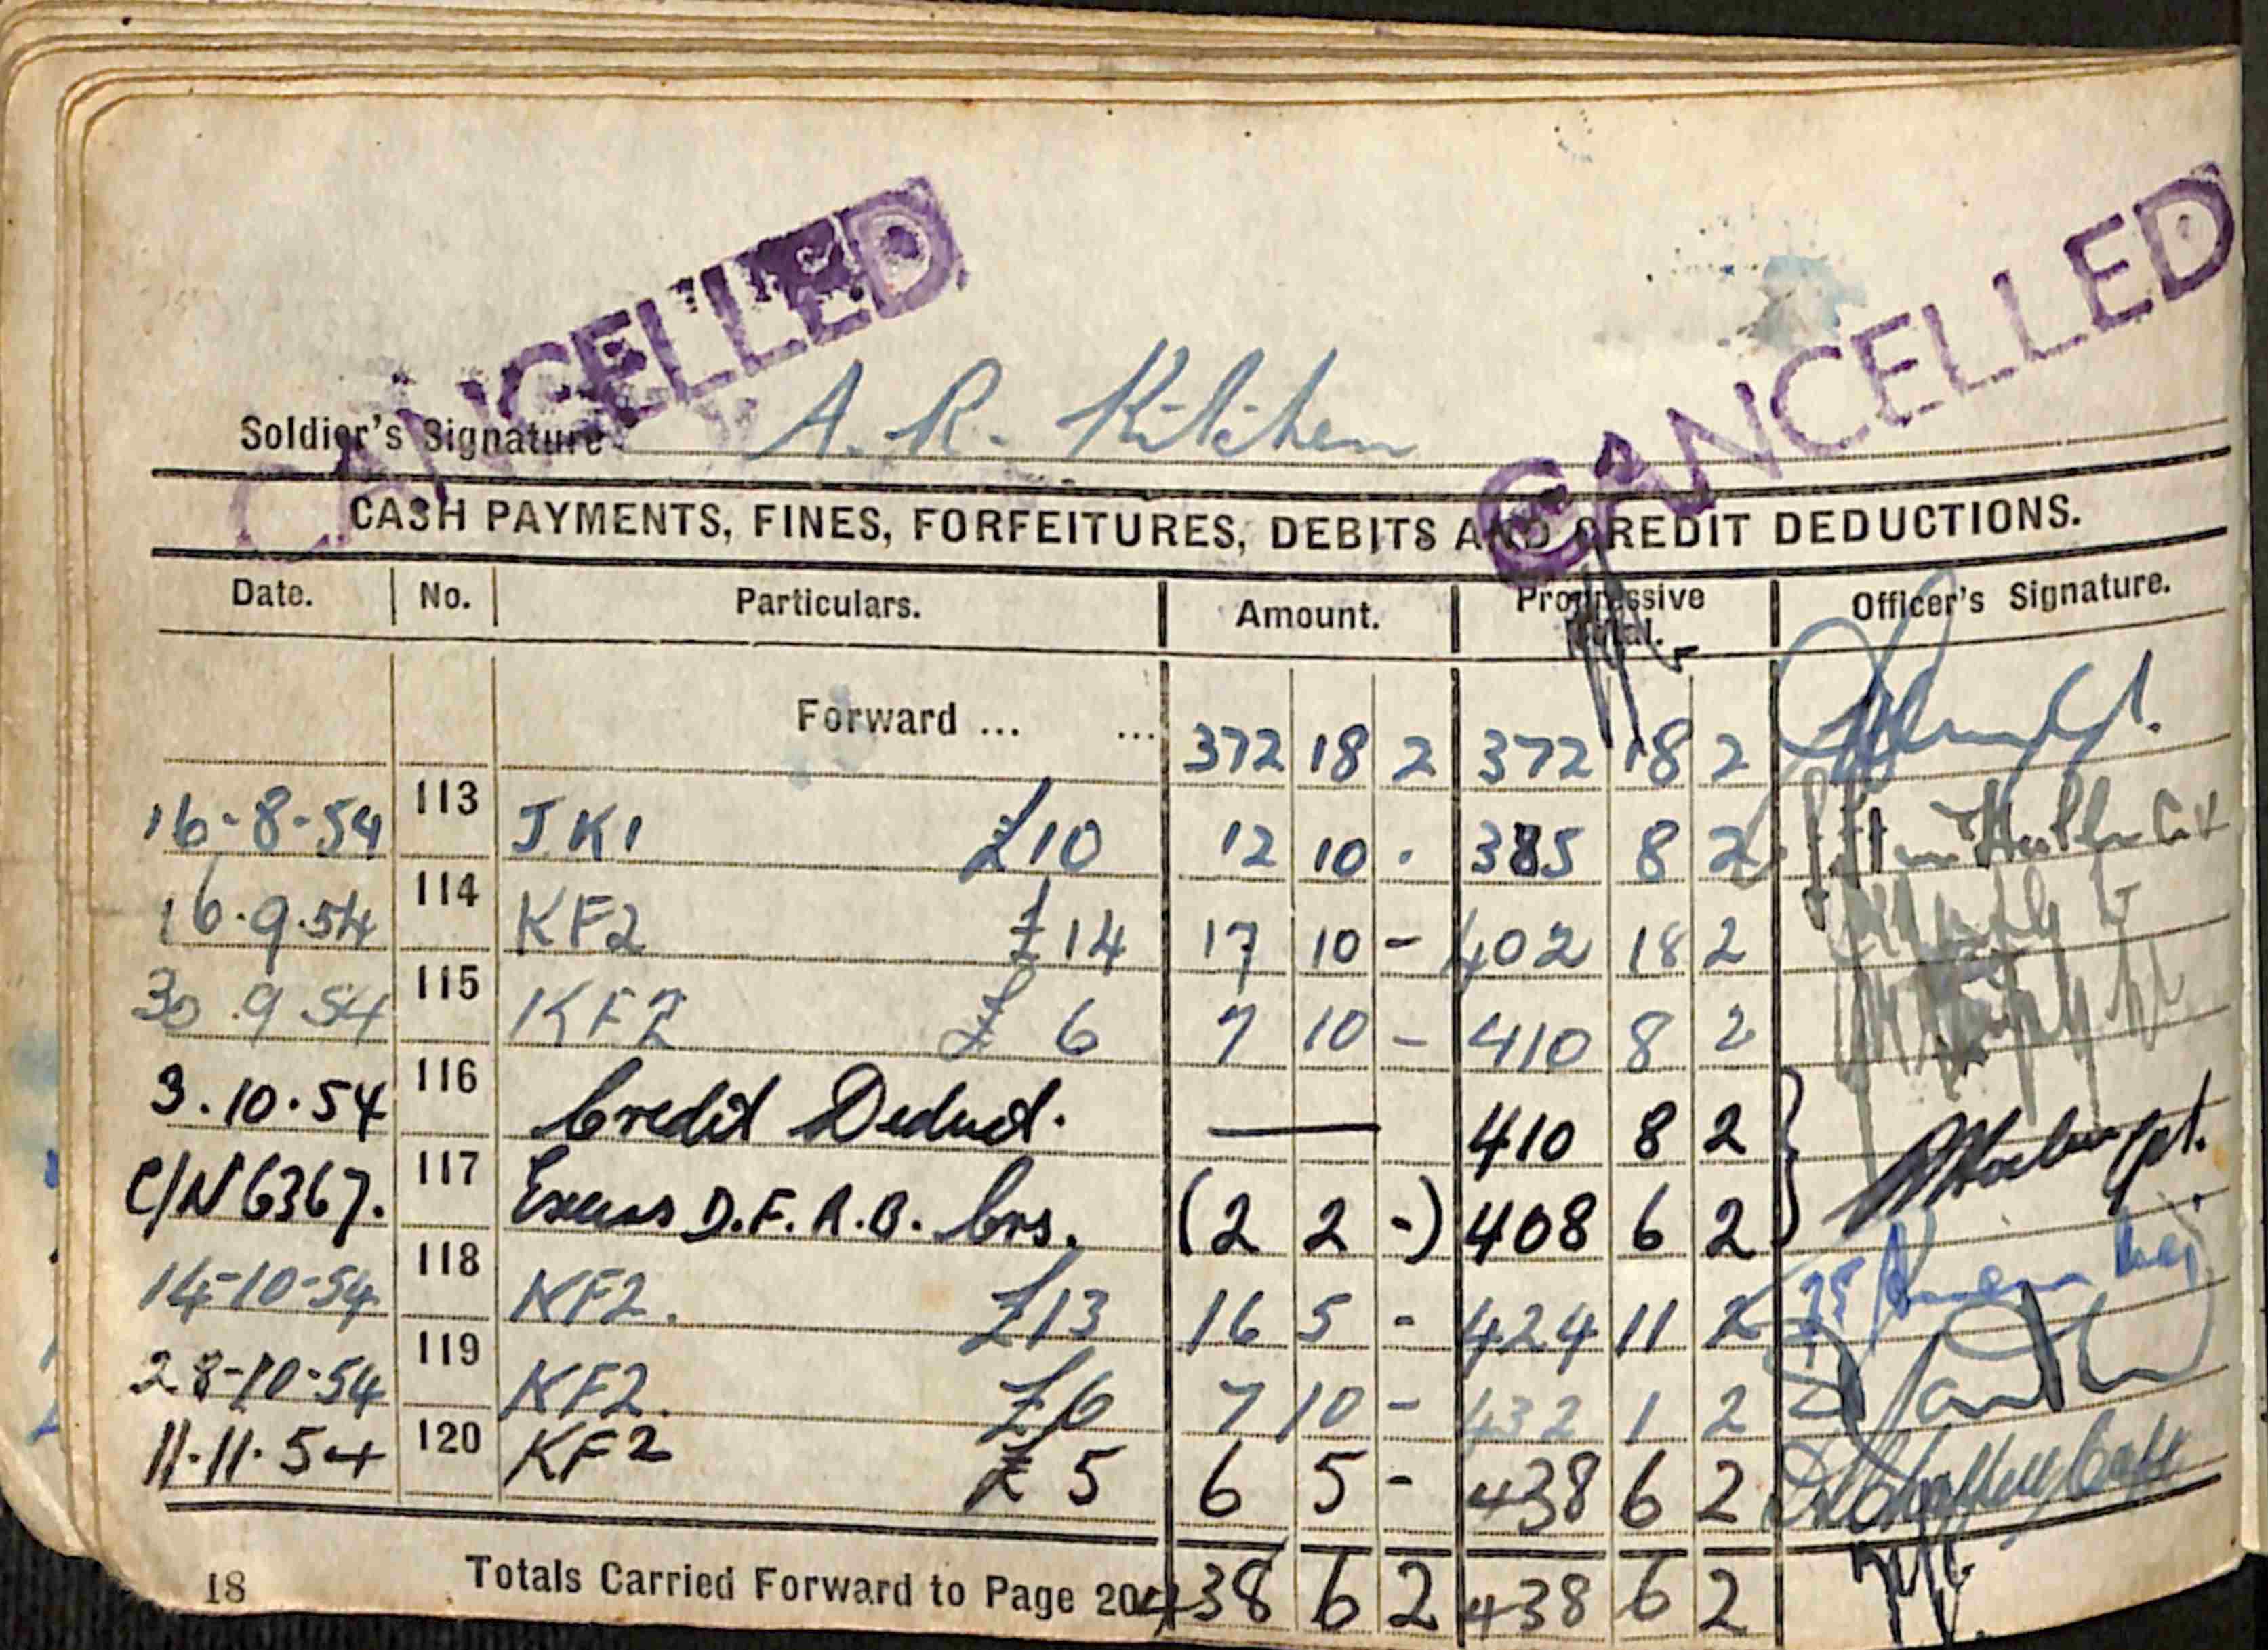 CANCELLED
CANCELLED
Soldier's Signature A. R. Kitchen
CASH PAYMENTS, FINES, FORFEITURES, DEBITS AND CREDIT DEDUCTIONS.
Date. No. Particulars. Amount. Progressive Total. Officer's Signature.
Forward ... ... 372 18 2 372 18 2
16-8-54 113 JK1 £10 12 10 - 385 8 2
16.9.54 114 KF2 £14 17 10 - 402 18 2
30.9 54 115 KF2 £ 6 7 10 - 410 8 2
3.10.54 116 Credit Deduct. — 410 8 2
C/N 6367. 117 Excess D.F.R.B. Crs. (2 2 -) 408 6 2
14-10-54 118 KF2. £13 16 5 - 424 11 2
28-10-54 119 KF2. £6 7 10 - 432 1 2
11.11.54 120 KF2 £ 5 6 5 - 438 6 2
18 Totals Carried Forward to Page 20 438 6 2 438 6 2